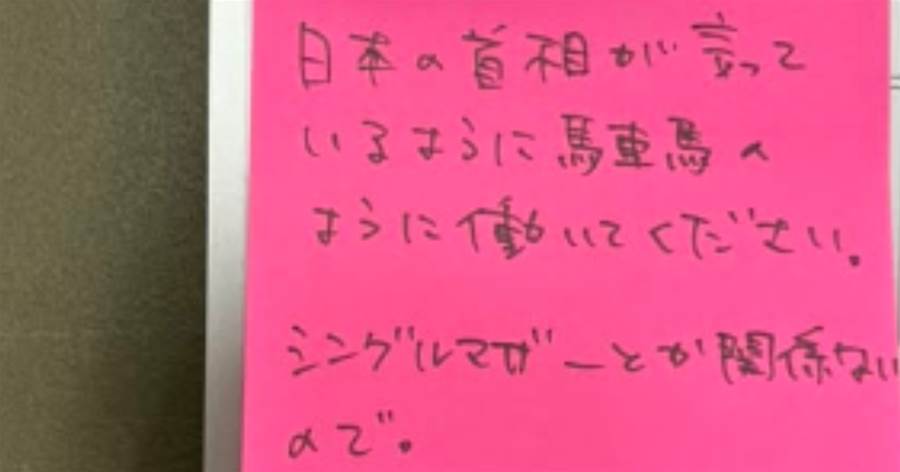 日本の首相が言って
いるように馬車馬の
ように働いてください。
シングルマザーとか関係ない
ので。